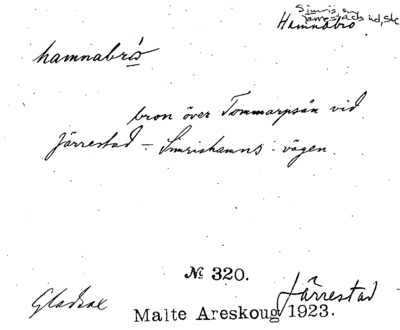 Simris sn
Järrestads hd, Sk
Hamnabro
hamnabró
bron över Tommarpsån vid
Järrestad – Simrishamns-vägen.
№ 320.
Gladsax
Järrestad
Malte Areskoug 1923.